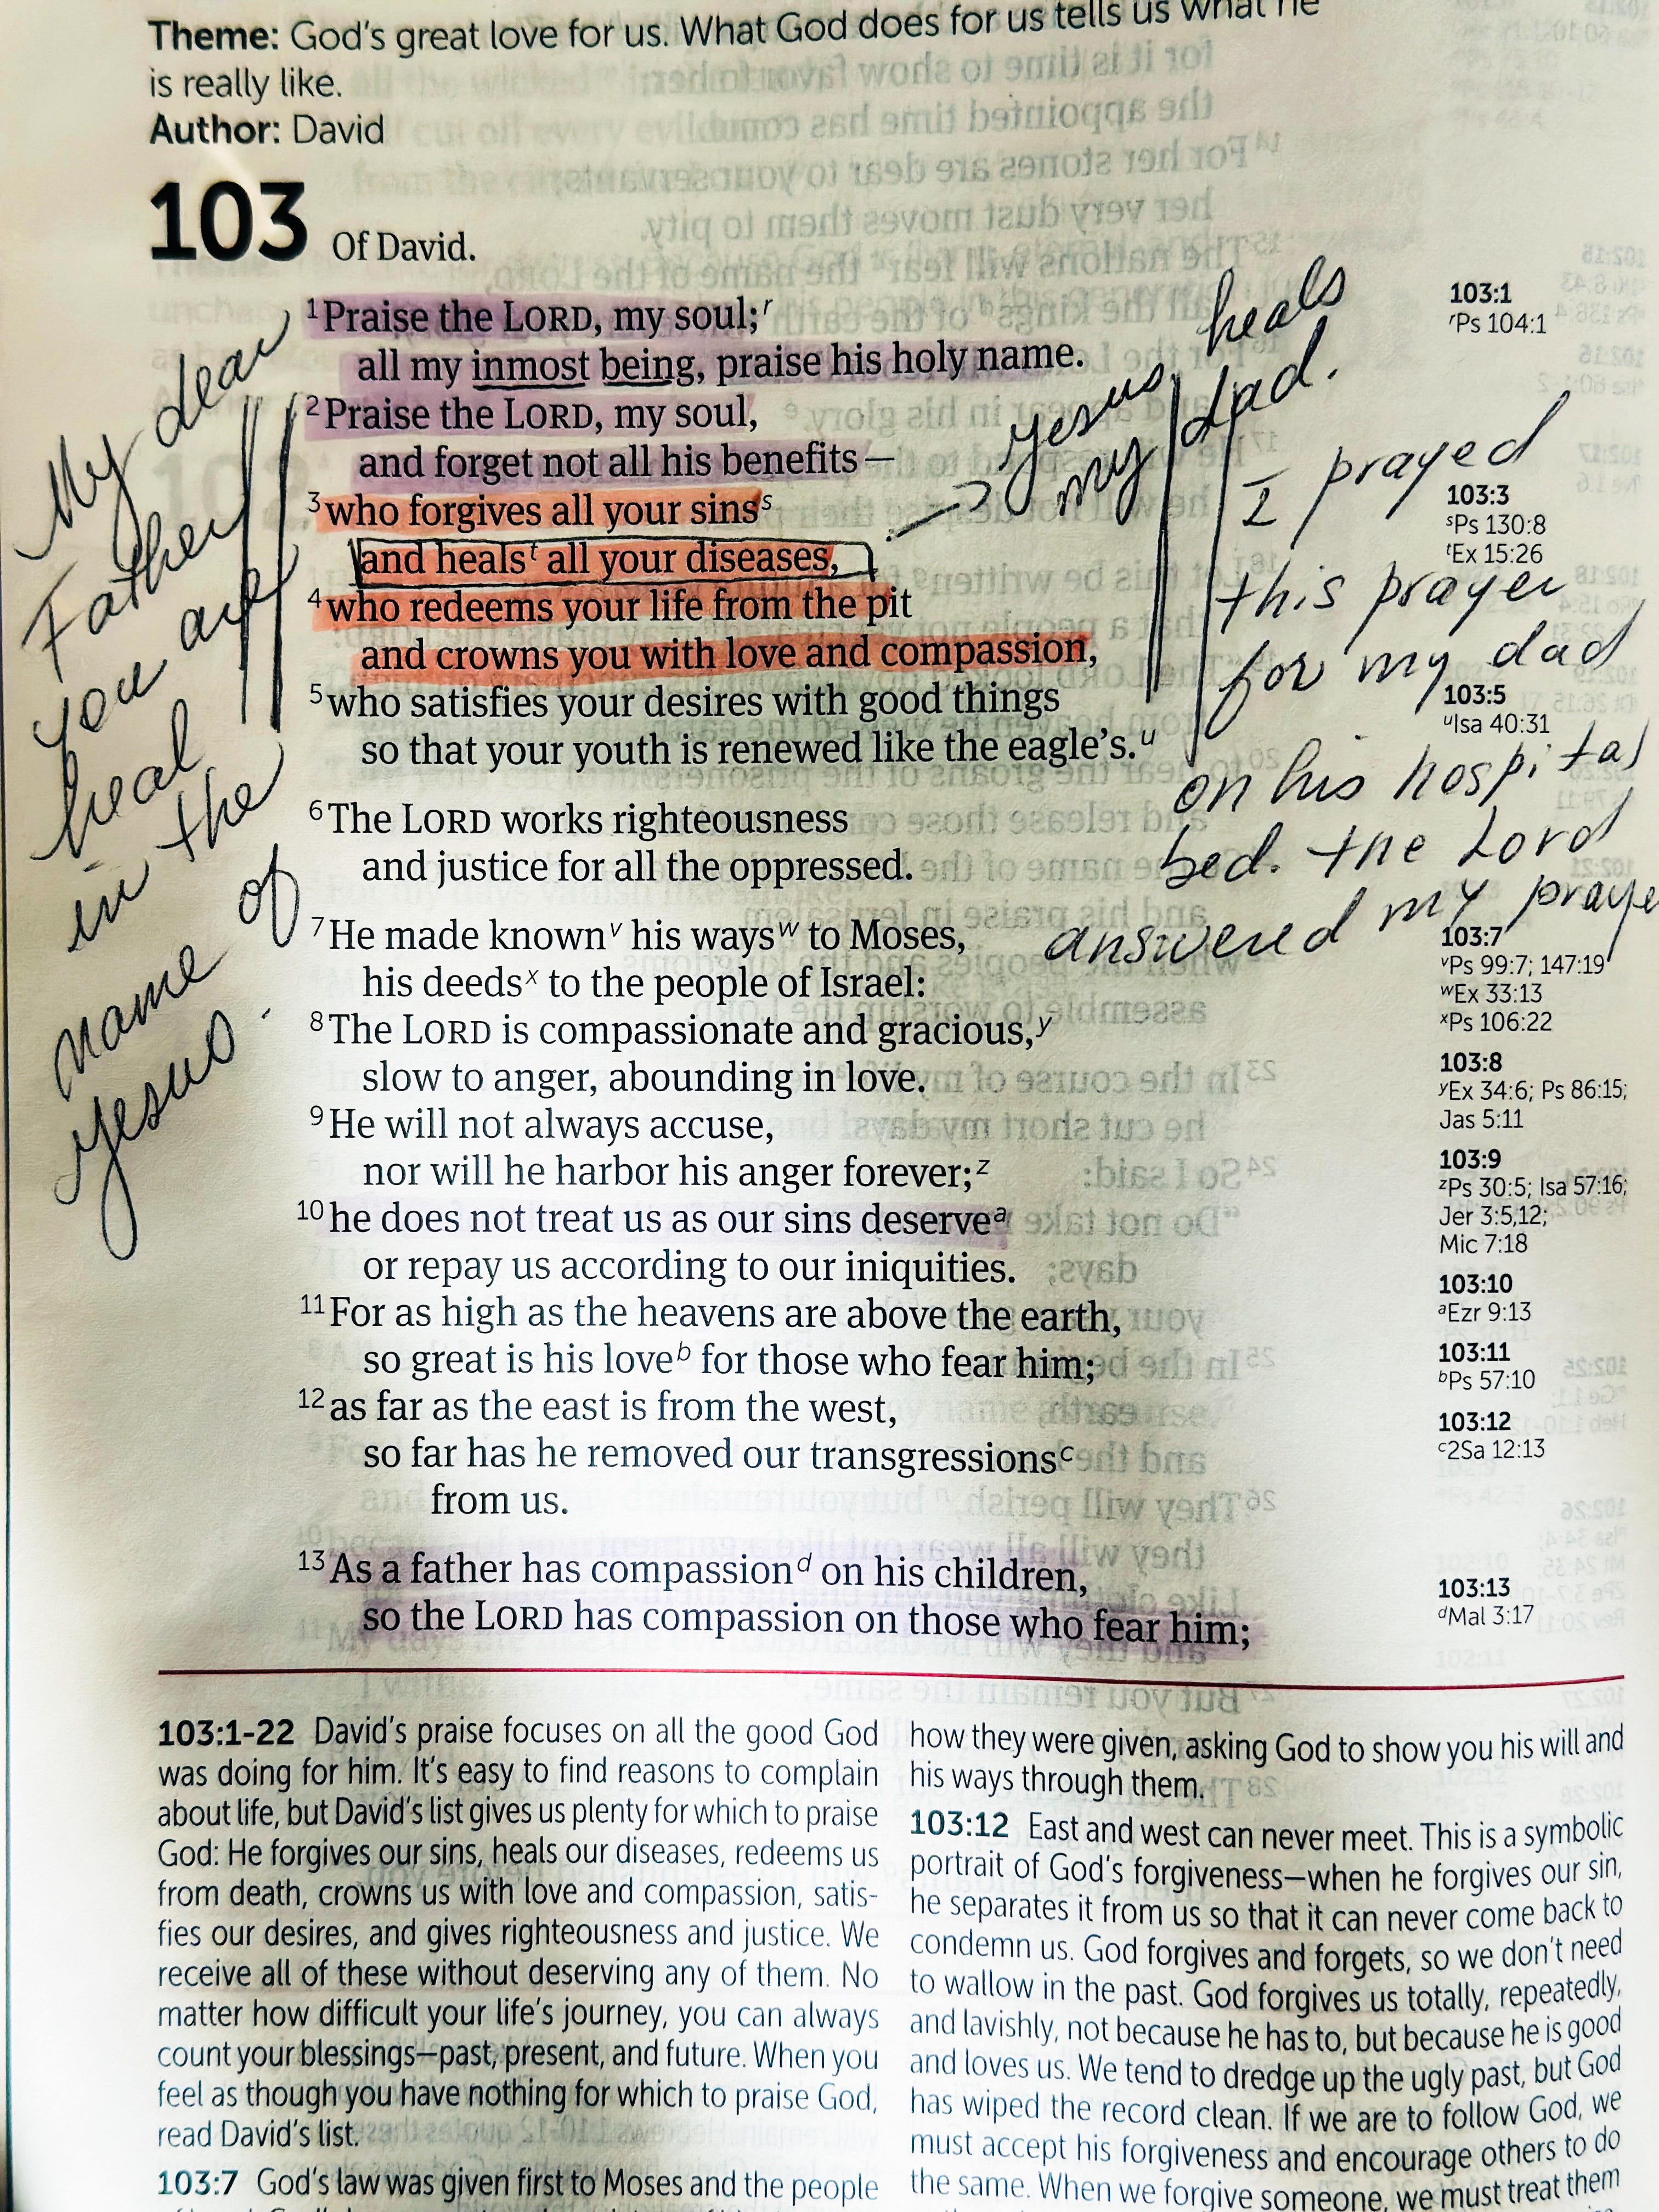 Theme: God's great love for us. What God does for us tells us what he
is really like.
Author: David
103 Of David.
1Praise the LORD, my soul;r
all my inmost being, praise his holy name.
2Praise the LORD, my soul,
and forget not all his benefits—
3who forgives all your sinss
and healst all your diseases,
4who redeems your life from the pit
and crowns you with love and compassion,
5who satisfies your desires with good things
so that your youth is renewed like the eagle's.u
6The LORD works righteousness
and justice for all the oppressed.
7He made knownv his waysw to Moses,
his deedsx to the people of Israel:
8The LORD is compassionate and gracious,y
slow to anger, abounding in love.
9He will not always accuse,
nor will he harbor his anger forever;z
10he does not treat us as our sins deservea
or repay us according to our iniquities.
11For as high as the heavens are above the earth,
so great is his loveb for those who fear him;
12as far as the east is from the west,
so far has he removed our transgressionsc
from us.
13As a father has compassiond on his children,
so the LORD has compassion on those who fear him;
My dear
Father
you are
heal
in the
name of
Jesus.
Jesus heals
my dad.
I prayed
this prayer
for my dad
on his hospital
bed. the Lord
answered my praye
103:1
rPs 104:1
103:3
sPs 130:8
tEx 15:26
103:5
uIsa 40:31
103:7
vPs 99:7; 147:19
wEx 33:13
xPs 106:22
103:8
yEx 34:6; Ps 86:15;
Jas 5:11
103:9
zPs 30:5; Isa 57:16;
Jer 3:5,12;
Mic 7:18
103:10
aEzr 9:13
103:11
bPs 57:10
103:12
c2Sa 12:13
103:13
dMal 3:17
103:1-22 David's praise focuses on all the good God
was doing for him. It's easy to find reasons to complain
about life, but David's list gives us plenty for which to praise
God: He forgives our sins, heals our diseases, redeems us
from death, crowns us with love and compassion, satis-
fies our desires, and gives righteousness and justice. We
receive all of these without deserving any of them. No
matter how difficult your life's journey, you can always
count your blessings—past, present, and future. When you
feel as though you have nothing for which to praise God,
read David's list.
103:7 God's law was given first to Moses and the people
how they were given, asking God to show you his will and
his ways through them.
103:12 East and west can never meet. This is a symbolic
portrait of God's forgiveness—when he forgives our sin,
he separates it from us so that it can never come back to
condemn us. God forgives and forgets, so we don't need
to wallow in the past. God forgives us totally, repeatedly,
and lavishly, not because he has to, but because he is good
and loves us. We tend to dredge up the ugly past, but God
has wiped the record clean. If we are to follow God, we
must accept his forgiveness and encourage others to do
the same. When we forgive someone, we must treat them